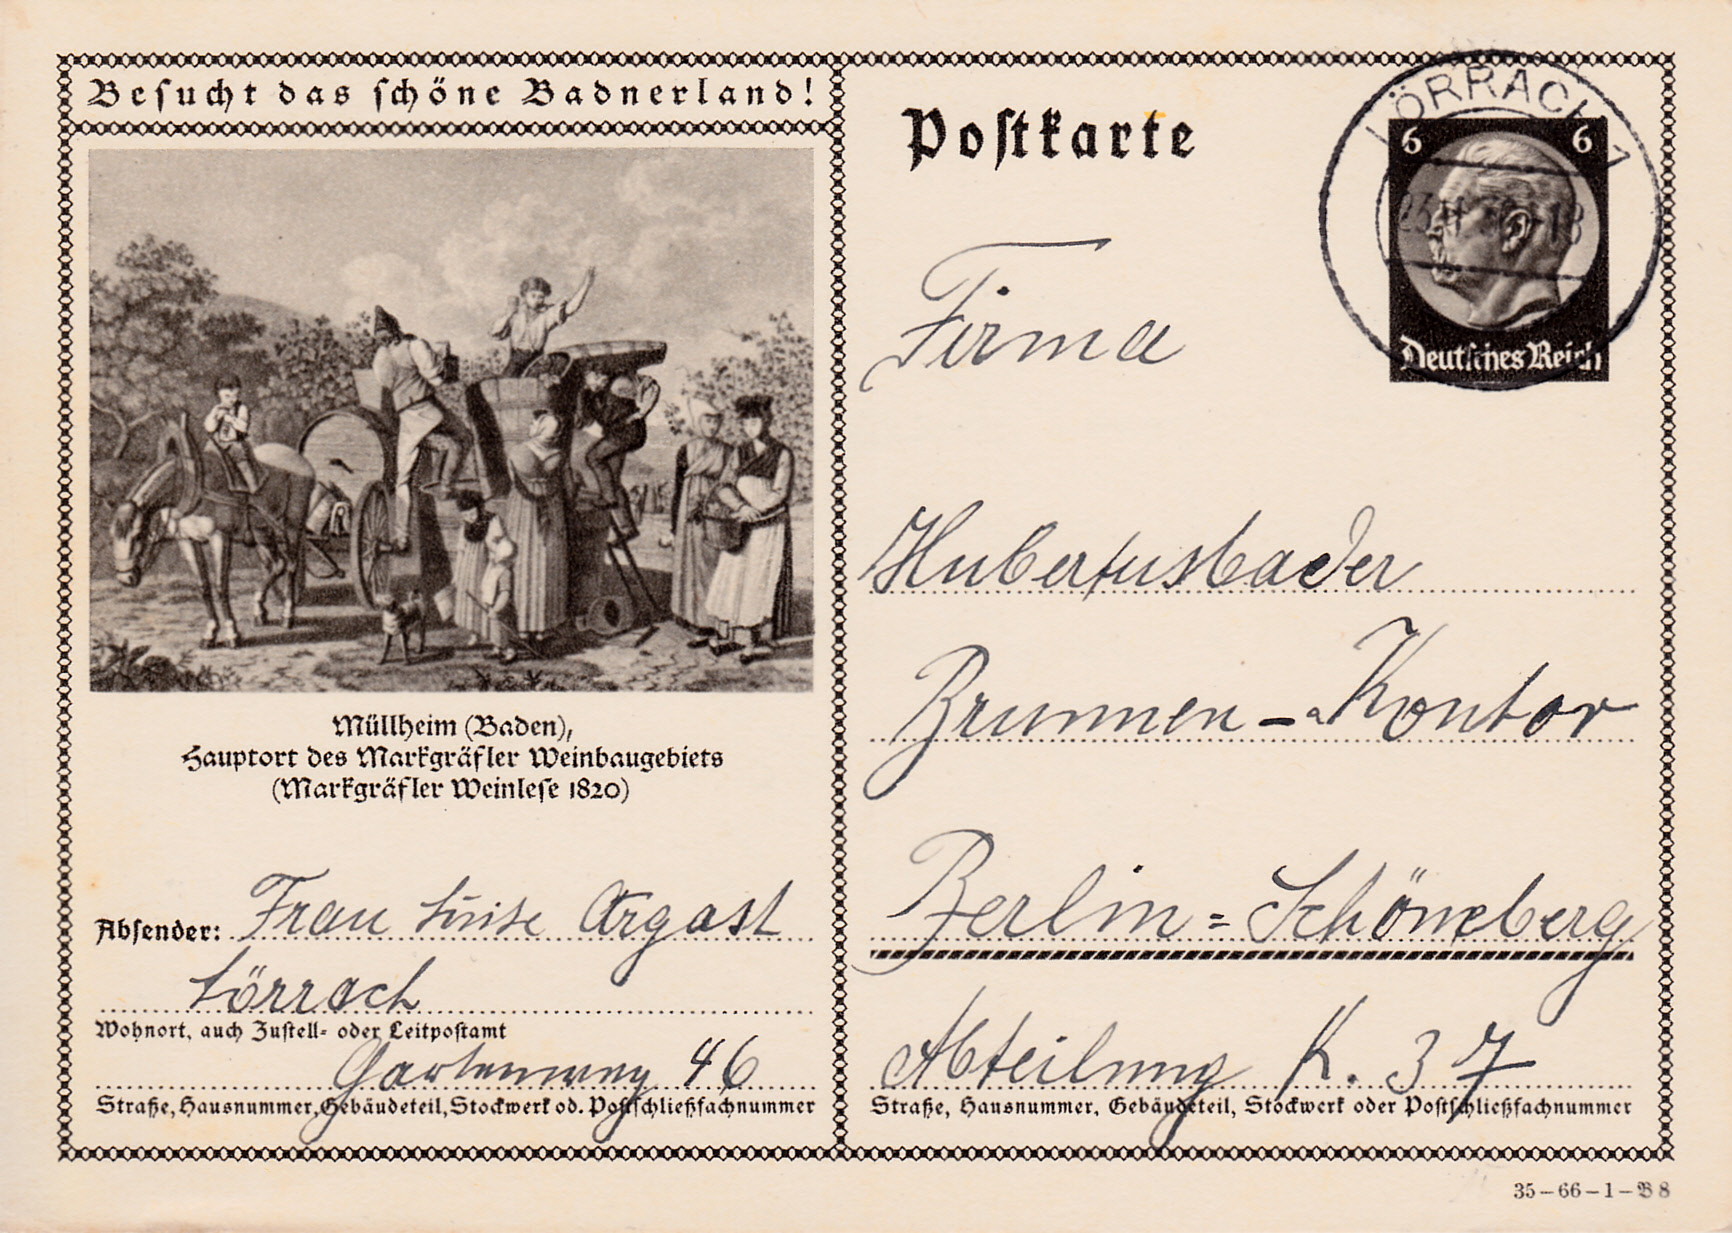 Besucht das schöne Badnerland!
Müllheim (Baden),
Hauptort des Markgräfler Weinbaugebiets
(Markgräfler Weinlese 1820)
Absender: Frau Luise Argast
Lörrach
Wohnort, auch Zustell- oder Leitpostamt
Gartenweg 46
Straße, Hausnummer, Gebäudeteil, Stockwerk od. Postschließfachnummer
Postkarte
LÖRRACH 1
6 6
Deutsches Reich
Firma
Hubertusbader
Brunnen-Kontor
Berlin=Schöneberg
Abteilung K. 37
Straße, Hausnummer, Gebäudeteil, Stockwerk oder Postschließfachnummer
35-66-1-B8